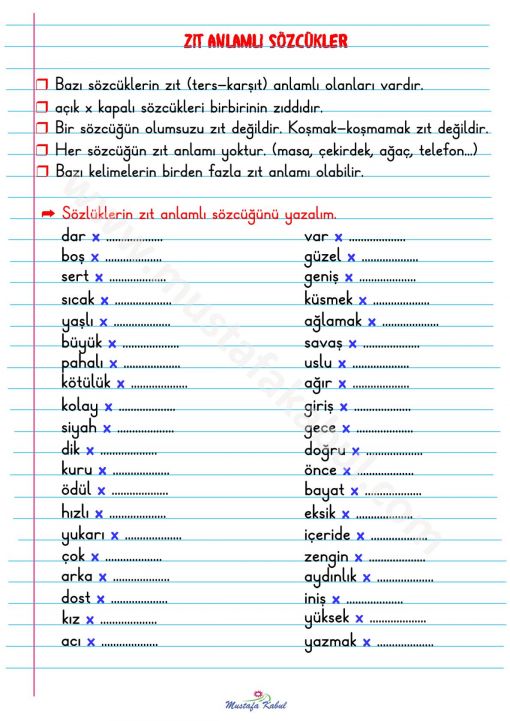 ZIT ANLAMLI SÖZCÜKLER
❒ Bazı sözcüklerin zıt (ters-karşıt) anlamlı olanları vardır.
❒ açık x kapalı sözcükleri birbirinin zıddıdır.
❒ Bir sözcüğün olumsuzu zıt değildir. Koşmak-koşmamak zıt değildir.
❒ Her sözcüğün zıt anlamı yoktur. (masa, çekirdek, ağaç, telefon...)
❒ Bazı kelimelerin birden fazla zıt anlamı olabilir.
➡ Sözlüklerin zıt anlamlı sözcüğünü yazalım.
dar x ...................
boş x ...................
sert x ...................
sıcak x ...................
yaşlı x ...................
büyük x ...................
pahalı x ...................
kötülük x ...................
kolay x ...................
siyah x ...................
dik x ...................
kuru x ...................
ödül x ...................
hızlı x ...................
yukarı x ...................
çok x ...................
arka x ...................
dost x ...................
kız x ...................
acı x ...................
var x ...................
güzel x ...................
geniş x ...................
küsmek x ...................
ağlamak x ...................
savaş x ...................
uslu x ...................
ağır x ...................
giriş x ...................
gece x ...................
doğru x ...................
önce x ...................
bayat x ...................
eksik x ...................
içeride x ...................
zengin x ...................
aydınlık x ...................
iniş x ...................
yüksek x ...................
yazmak x ...................
www.mustafakabul.com
Mustafa Kabul